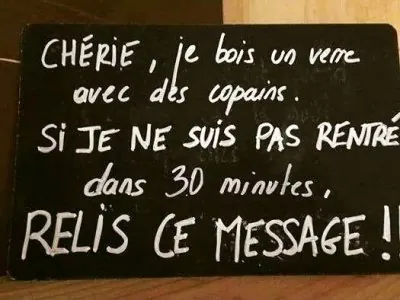 CHÉRIE, je bois un verre
avec des copains.
SI JE NE SUIS PAS RENTRÉ
dans 30 minutes,
RELIS CE MESSAGE !!